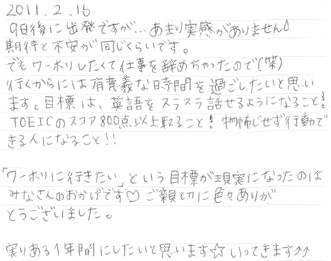 2011.2.16
9日後に出発ですが…あまり実感がありません♪
期待と不安が同じくらいです。
でもワーホリしたくて仕事を辞めちゃったので(笑)
行くからには有意義な時間を過ごしたいと思い
ます。目標は、英語をスラスラ話せるようになること!
TOEICのスコア800点以上取ること! 物怖じせず行動で
きる人になること!!
「ワーホリに行きたい」という目標が現実になったのは
みなさんのおかげです♡ご親切に色々ありが
とうございました。
実りある1年間にしたいと思います☆いってきます↗↗